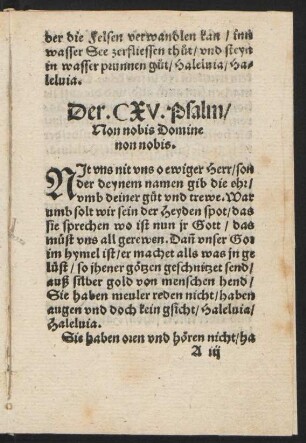 der die Felsen verwandlen kan / inn
wasser See zerfliessen thůt / vnd steyn
in wasser prunnen gůt / Haleluia / Ha-
leluia.
Der. CXV. Psalm /
Non nobis Domine
non nobis.
NIt vns nit vns o ewiger Herr / son
der deynem namen gib die ehr /
vmb deiner gůt vnd trewe. War
umb solt wir sein der Heyden spot / das
sie sprechen wo ist nun jr Gott / das
můst vns all gerewen. Dañ vnser Got
im hymel ist / er machet alls was jn ge
lůst / so jhener götzen geschnitzet send /
auß silber gold von menschen hend /
Sie haben meuler reden nicht / haben
augen vnd doch kein gsicht / Haleluia /
Haleluia.
Sie haben oren vnd hören nicht / ha
A iij